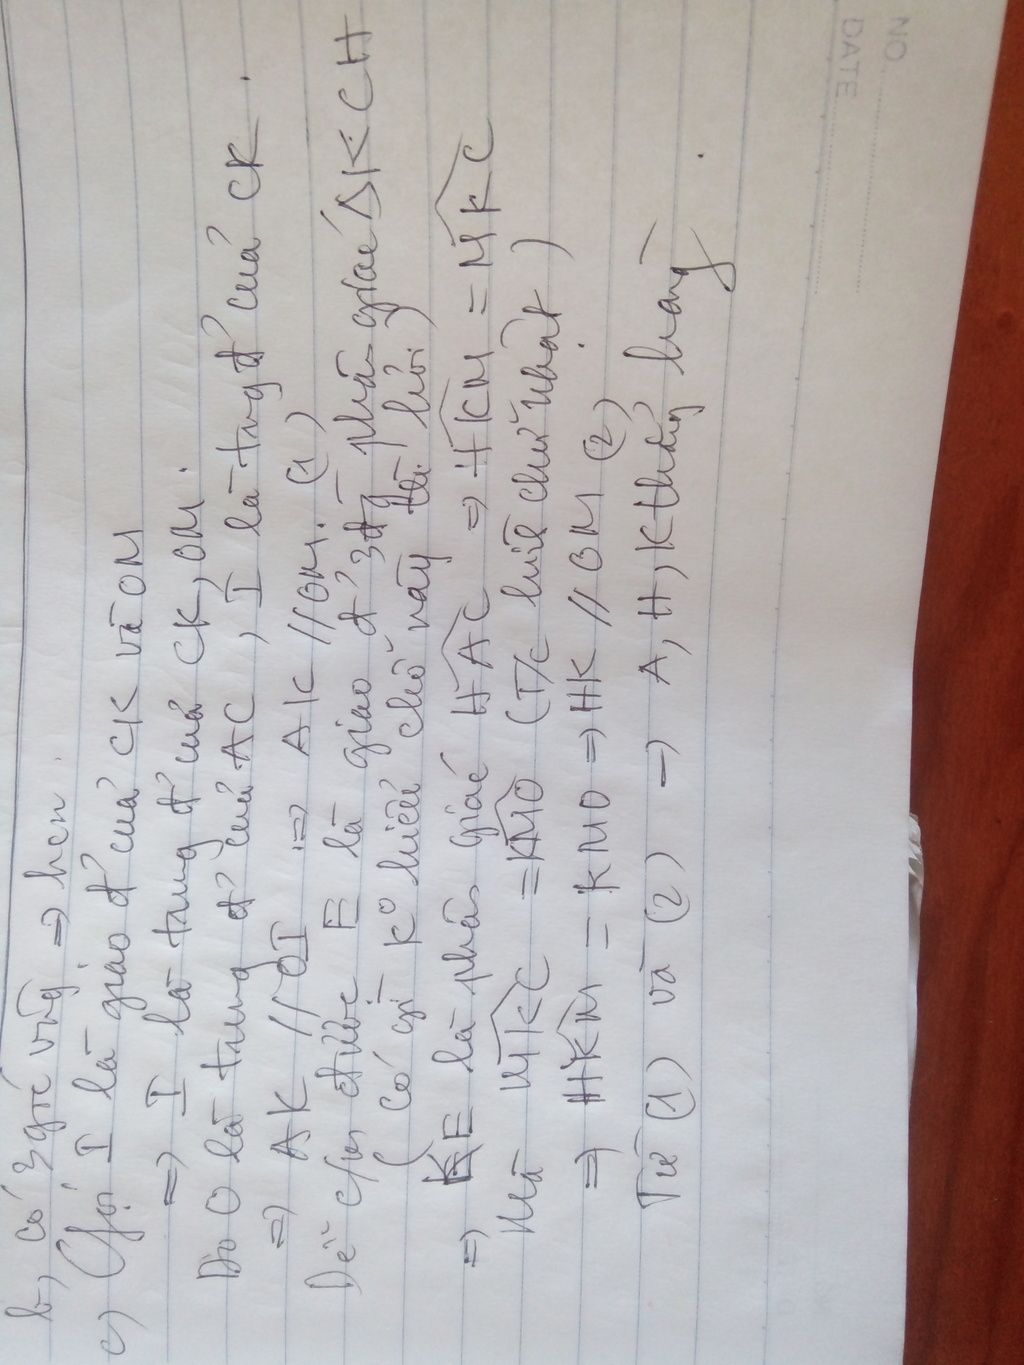 b, có 3 góc vuông => hcn.
c) Gọi I là giao đ' của CK và OM
=> I là trung đ' của CK, OM.
Do O là trung đ' của AC, I là trung đ' của CK.
=> AK // OI => AK // OM. (1)
Dễ c/m được E là giao đ' 3 đg phân giác ΔKCH
(có gì k° hiểu chỗ này thì hỏi)
=> KE là phân giác HAC => HKM = MKC
Mà MKC = KMO (T/c hình chữ nhật)
=> HKM = KMO => HK // OM (2)
Từ (1) và (2) → A, H, K thẳng hàng
NO
DATE